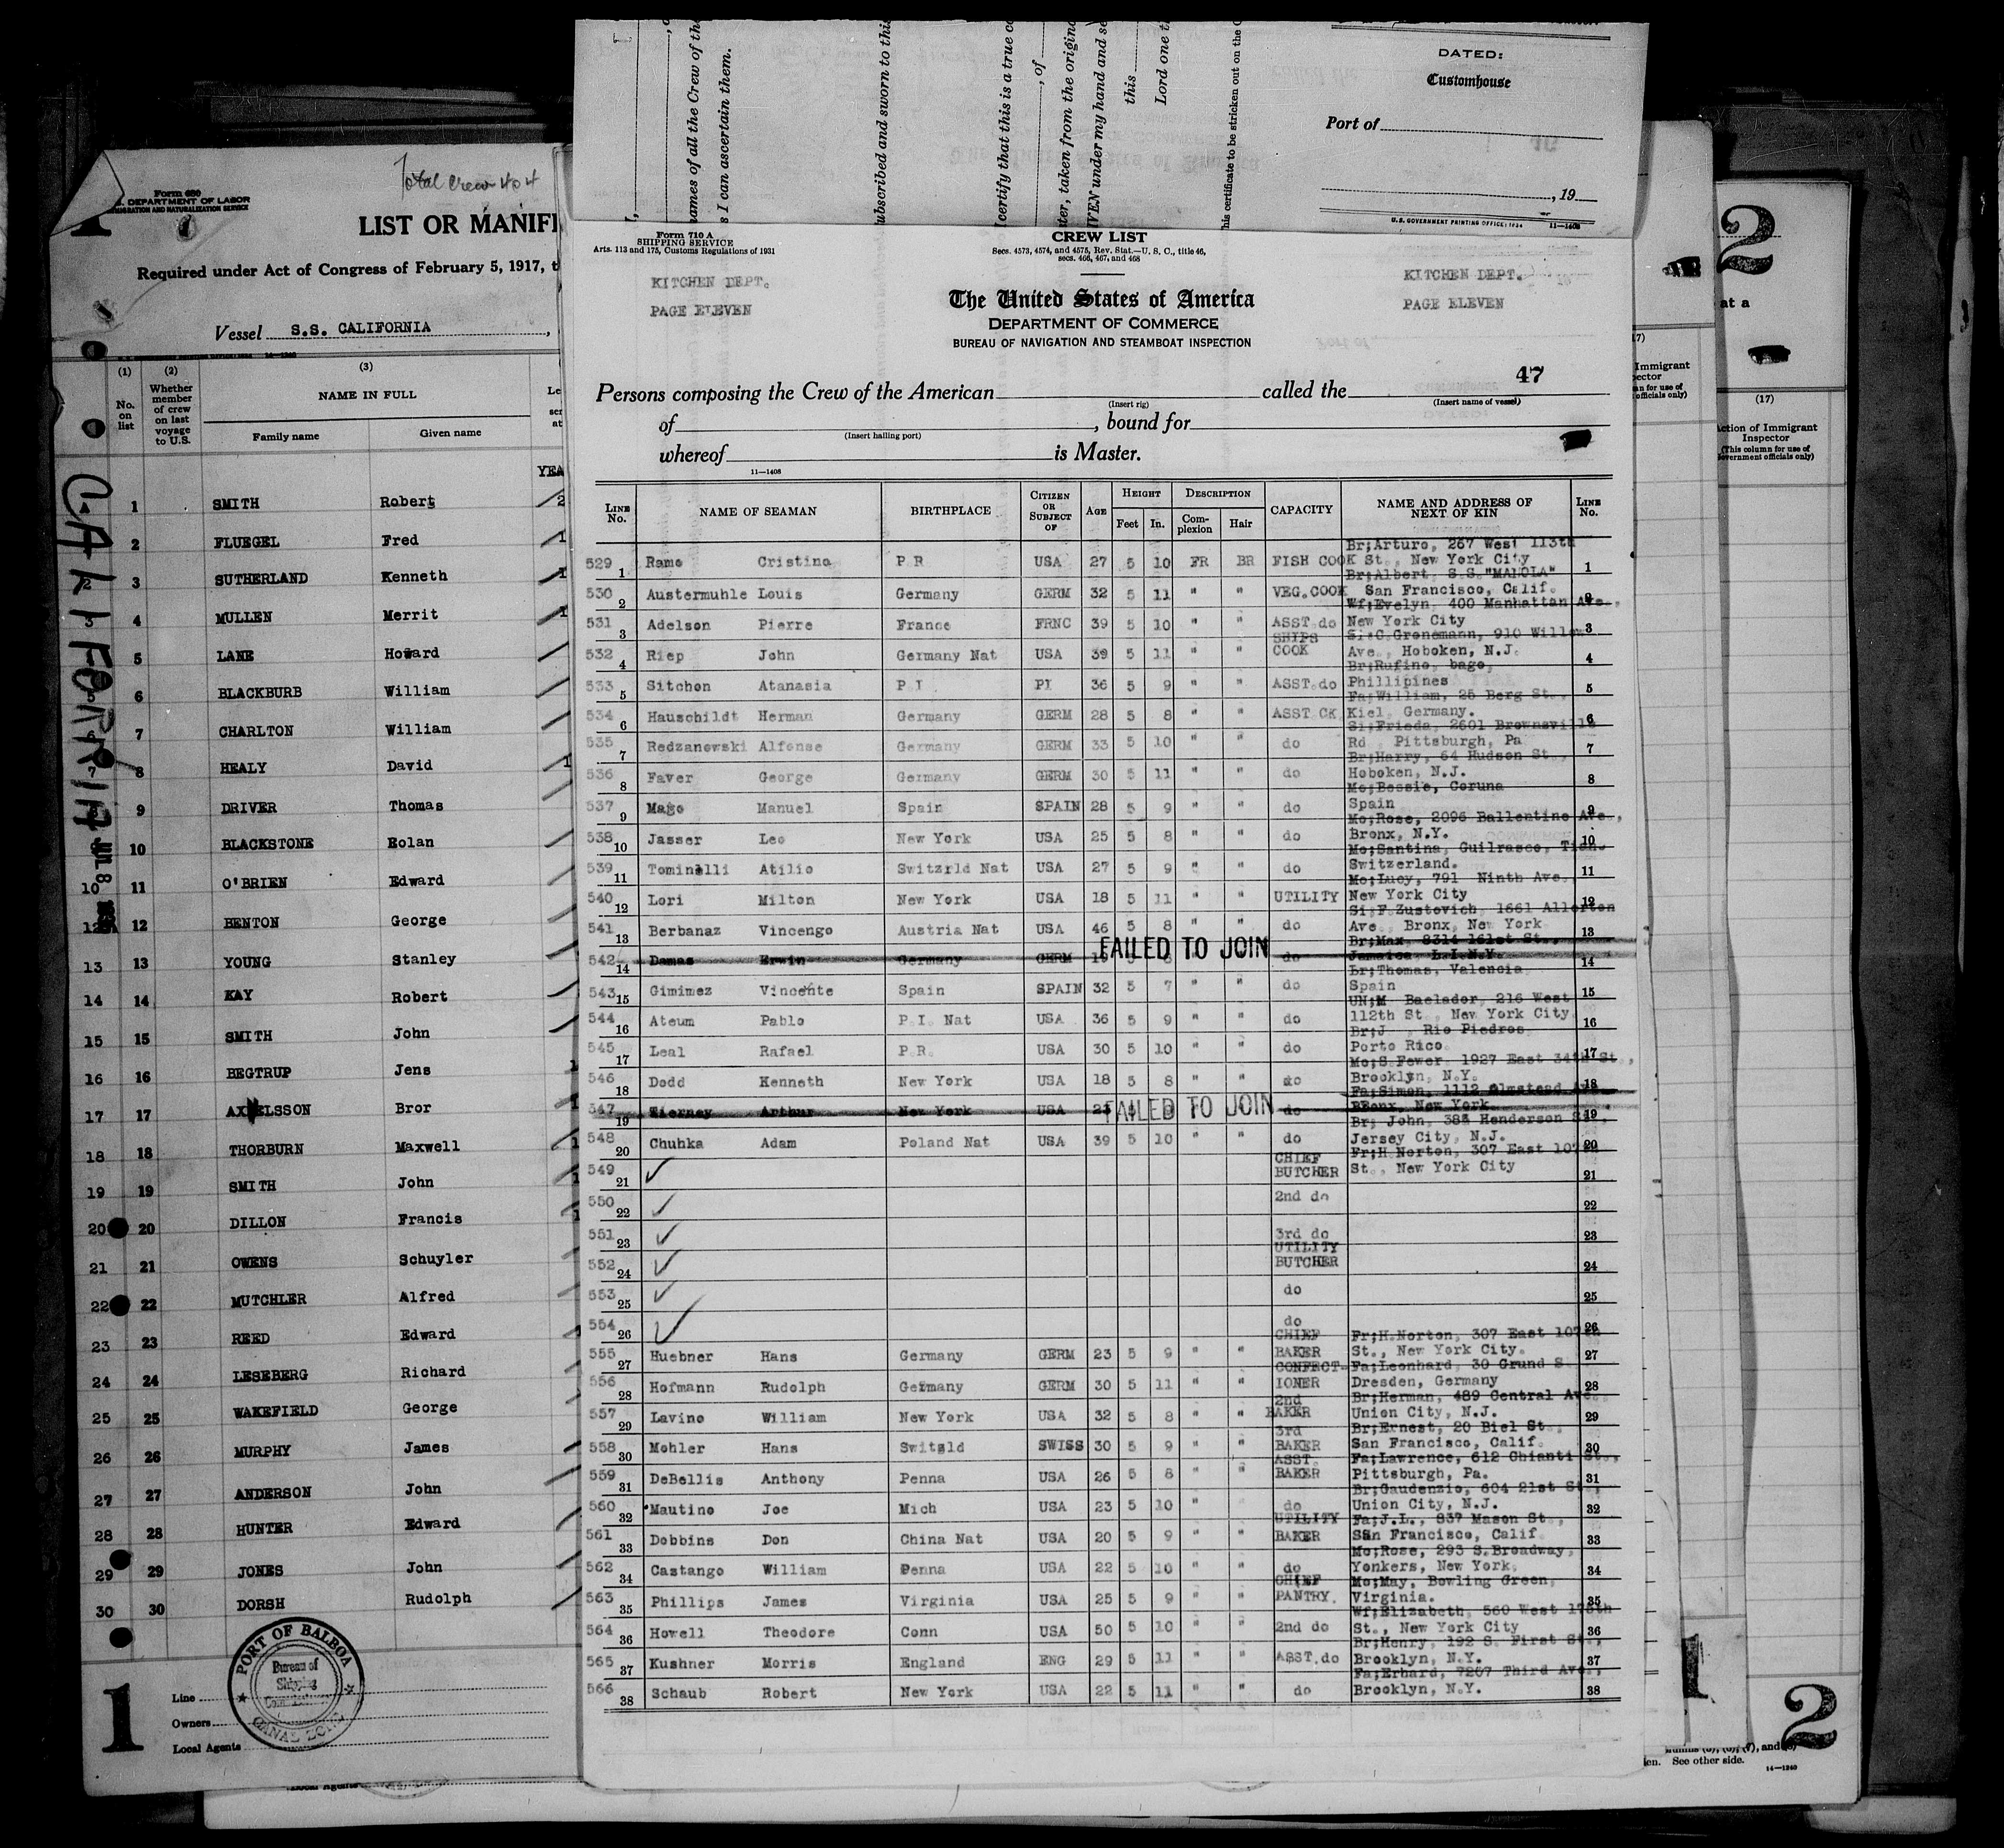 Total Crew 404
Form 680
DEPARTMENT OF LABOR
IMMIGRATION AND NATURALIZATION SERVICE
LIST OR MANIF
Required under Act of Congress of February 5, 1917, t
Vessel S.S. CALIFORNIA
(1) (2) (3)
No. on list
Whether member of crew on last voyage to U.S.
NAME IN FULL
Family name Given name
YEA
CALIFORNIA
1 SMITH Robert
2 FLUEGEL Fred
3 SUTHERLAND Kenneth
4 MULLEN Merrit
5 LANE Howard
6 BLACKBURB William
7 CHARLTON William
8 HEALY David
9 DRIVER Thomas
10 BLACKSTONE Rolan
10 11 O'BRIEN Edward
12 12 BENTON George
13 13 YOUNG Stanley
14 14 KAY Robert
15 15 SMITH John
16 16 BEGTRUP Jens
17 17 AXELSSON Bror
18 18 THORBURN Maxwell
19 19 SMITH John
20 20 DILLON Francis
21 21 OWENS Schuyler
22 22 MUTCHLER Alfred
23 23 REED Edward
24 24 LESEBERG Richard
25 25 WAKEFIELD George
26 26 MURPHY James
27 27 ANDERSON John
28 28 HUNTER Edward
29 29 JONES John
30 30 DORSH Rudolph
PORT OF BALBOA
Bureau of
Shipping
CANAL ZONE
1
Line
Owners
Local Agents
names of all the Crew of the
s I can ascertain them.
ubscribed and sworn to this
certify that this is a true co
, of
ter, taken from the origina
VEN under my hand and se
this
Lord one t
his certificate to be stricken out on the
DATED:
Customhouse
Port of
, 19
U.S. GOVERNMENT PRINTING OFFICE: 1934 11—1408
Form 710 A
SHIPPING SERVICE
Arts. 113 and 175, Customs Regulations of 1931
CREW LIST
Secs. 4573, 4574, and 4575, Rev. Stat.—U. S. C., title 46,
secs. 466, 467, and 468
KITCHEN DEPT.
PAGE ELEVEN
The United States of America
DEPARTMENT OF COMMERCE
BUREAU OF NAVIGATION AND STEAMBOAT INSPECTION
KITCHEN DEPT.
PAGE ELEVEN
47
Persons composing the Crew of the American called the
(Insert rig) (Insert name of vessel)
of , bound for
(Insert hailing port)
whereof is Master.
11—1408
LINE No. NAME OF SEAMAN BIRTHPLACE CITIZEN OR SUBJECT OF AGE HEIGHT Feet In. DESCRIPTION Complexion Hair CAPACITY NAME AND ADDRESS OF NEXT OF KIN LINE No.
Br;Arturo, 267 West 113th
529 1 Ramo Cristino P R USA 27 5 10 FR BR FISH COOK St., New York City 1
Br;Albert, S.S. "MANOLA"
530 2 Austermuhle Louis Germany GERM 32 5 11 " " VEG.COOK San Francisco, Calif. 2
Wf;Evelyn, 400 Manhattan Ave.,
531 3 Adelson Pierre France FRNC 39 5 10 " " ASST do New York City 3
SHIPS S.C.Gronemann, 910 Willow
532 4 Riep John Germany Nat USA 39 5 11 " " COOK Ave., Hoboken, N.J. 4
Br;Rufino, bago,
533 5 Sitchon Atanasia P I PI 36 5 9 " " ASST do Phillipines 5
Fa;William, 25 Berg St.,
534 6 Hauschildt Herman Germany GERM 28 5 8 " " ASST CK Kiel, Germany. 6
Si;Frieda, 2601 Brownsville
535 7 Redzanowski Alfonse Germany GERM 33 5 10 " " do Rd Pittsburgh, Pa 7
Br;Harry, 64 Hudson St.,
536 8 Faver George Germany GERM 30 5 11 " " do Hoboken, N.J. 8
Mo;Bessie, Coruna
537 9 Mago Manuel Spain SPAIN 28 5 9 " " do Spain 9
Mo;Rose, 2096 Ballentine Ave.,
538 10 Jasser Leo New York USA 25 5 8 " " do Bronx, N.Y. 10
Mo;Santina, Guilrasco,
539 11 Tominelli Atilio Switzrld Nat USA 27 5 9 " " do Switzerland. 11
Mo;Lucy, 791 Ninth Ave.
540 12 Lori Milton New York USA 18 5 11 " " UTILITY New York City 12
Si;F.Zustovich, 1661 Allerton
541 13 Berbanaz Vincengo Austria Nat USA 46 5 8 " " do Ave Bronx, New York 13
Br;Max, 8314 161st St.,
542 14 Damas Erwin Germany GERM FAILED TO JOIN do Jamaica L.I.N.Y. 14
Br;Thomas, Valencia
543 15 Gimimez Vincente Spain SPAIN 32 5 7 " " do Spain 15
UN;M Baelador, 216 West
544 16 Ateum Pablo P.I. Nat USA 36 5 9 " " do 112th St., New York City 16
Br;J Rio Piedros
545 17 Leal Rafael P.R. USA 30 5 10 " " do Porto Rico 17
Mo;S.Fewer, 1927 East 34th St.,
546 18 Dodd Kenneth New York USA 18 5 8 " " do Brooklyn, N.Y. 18
Fa;Simon, 1112 Olmstead Ave
547 19 Tierney Arthur New York USA 23 FAILED TO JOIN do Bronx, New York 19
Br; John, 383 Henderson St.,
548 20 Chuhka Adam Poland Nat USA 39 5 10 " " do Jersey City, N.J. 20
CHIEF Fr;H.Norton, 307 East 107th
549 21 ✓ BUTCHER St., New York City 21
550 22 ✓ 2nd do 22
551 23 ✓ 3rd do 23
UTILITY
552 24 ✓ BUTCHER 24
553 25 ✓ do 25
554 26 ✓ do 26
CHIEF Fr;H.Norton, 307 East 107th
555 27 Huebner Hans Germany GERM 23 5 9 " " BAKER St., New York City. 27
CONFECT- Fa;Leonhard, 30 Grund S
556 28 Hofmann Rudolph Germany GERM 30 5 11 " " IONER Dresden, Germany 28
2nd Br;Herman, 489 Central Ave.
557 29 Lavino William New York USA 32 5 8 " " BAKER Union City, N.J. 29
3rd Br;Ernest, 20 Biel St.,
558 30 Mohler Hans Switzld SWISS 30 5 9 " " BAKER San Francisco, Calif. 30
ASST. Fa;Lawrence, 612 Chianti St.,
559 31 DeBellis Anthony Penna USA 26 5 8 " " BAKER Pittsburgh, Pa. 31
Br;Gaudenzio, 604 21st St,
560 32 Mautino Joe Mich USA 23 5 10 " " do Union City, N.J. 32
UTILITY Fa;J.L., 837 Mason St.,
561 33 Dobbins Don China Nat USA 20 5 9 " " BAKER San Francisco, Calif 33
Mo;Rose, 293 S.Broadway,
562 34 Castango William Penna USA 22 5 10 " " do Yonkers, New York 34
CHIEF Mo;May, Bowling Green,
563 35 Phillips James Virginia USA 25 5 9 " " PANTRY. Virginia. 35
Wf;Elizabeth, 560 West 175th
564 36 Howell Theodore Conn USA 50 5 10 " " 2nd do St., New York City 36
Br;Henry, 192 S. First St.,
565 37 Kushner Morris England ENG 29 5 11 " " ASST.do Brooklyn, N.Y. 37
Fa;Erhard, 7207 Third Ave.,
566 38 Schaub Robert New York USA 22 5 11 " " do Brooklyn, N.Y. 38
2
at a
(17)
Action of Immigrant
Inspector
(This column for use of
Government officials only)
1
2
See other side.
14—1240